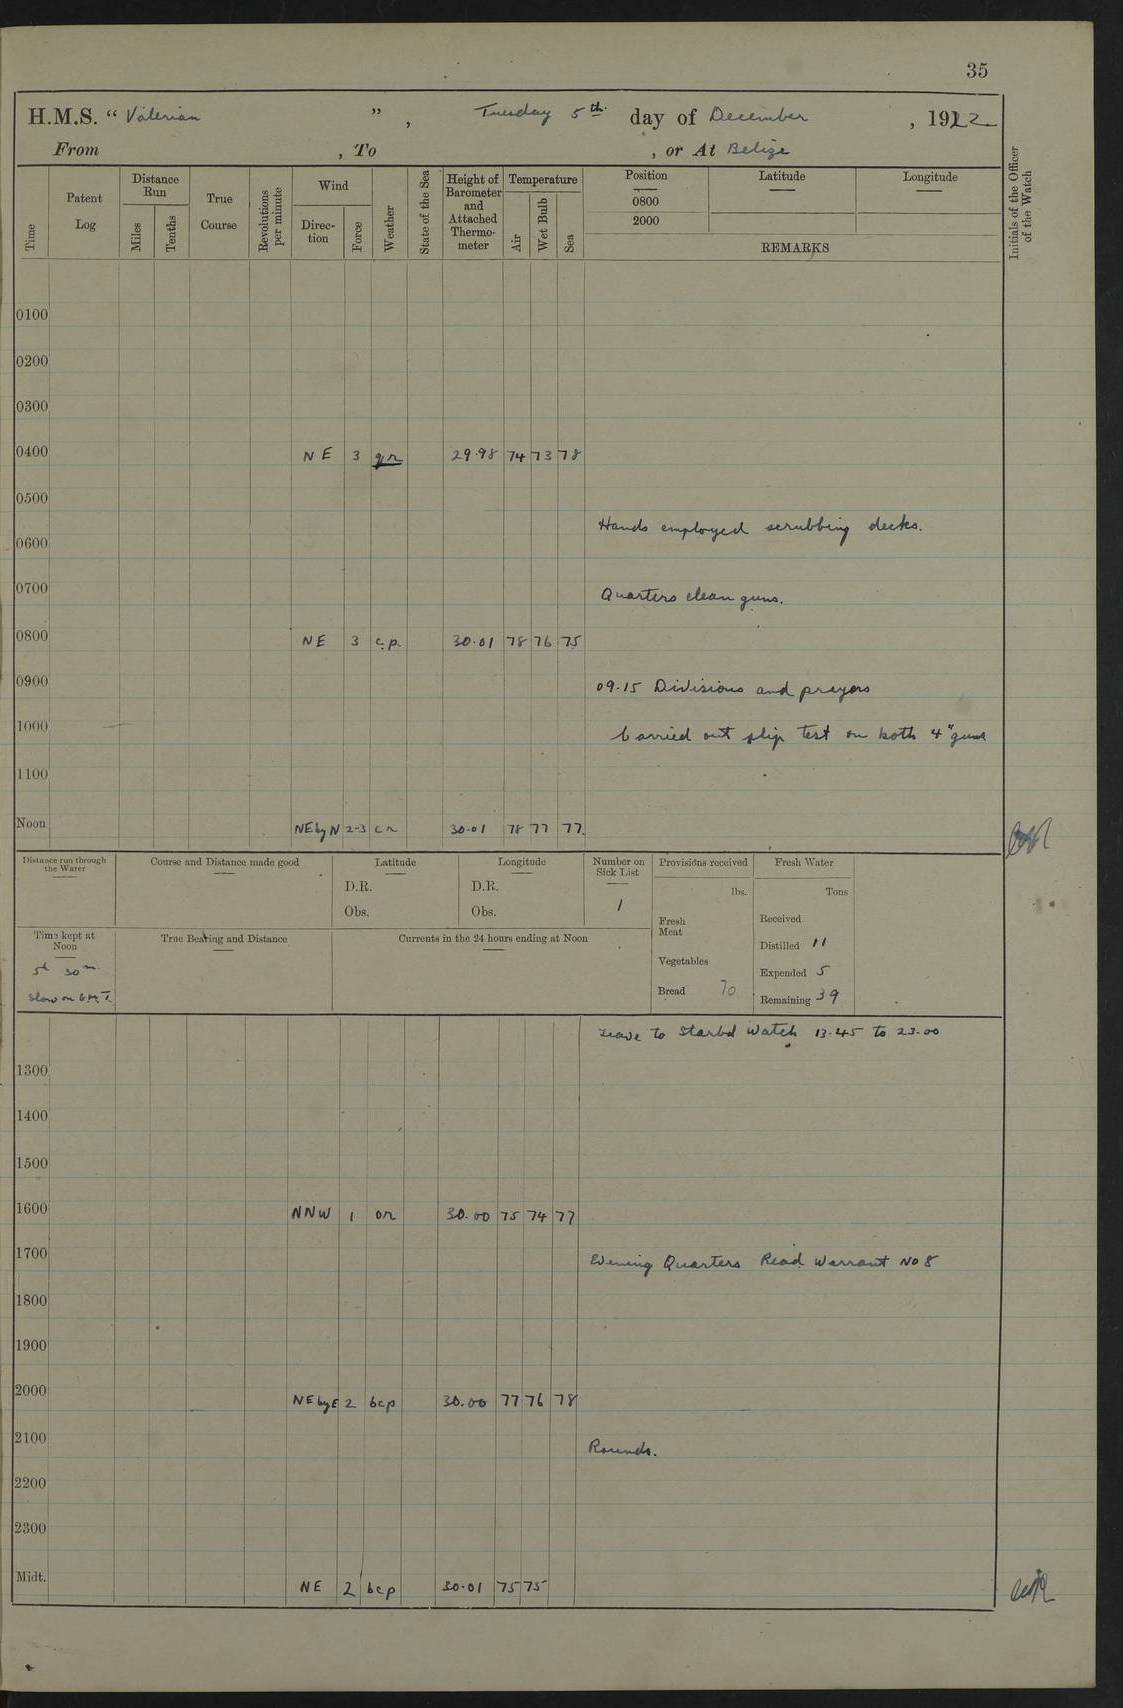 35
H.M.S. “ Valerian ” , Tuesday 5th day of December , 1922
From , To , or At Belize
Time
Patent Log
Distance Run
Miles
Tenths
True Course
Revolutions per minute
Wind
Direction
Force
Weather
State of the Sea
Height of Barometer and Attached Thermometer
Temperature
Air
Wet Bulb
Sea
Position
0800
2000
Latitude
Longitude
REMARKS
Initials of the Officer of the Watch
0100
0200
0300
0400 NE 3 29.98 74 73 78
0500
Hands employed scrubbing decks.
0600
0700
Quarters clean guns.
0800 NE 3 c.p. 30.01 78 76 75
0900 09.15 Divisions and prayers
1000 Carried out slip test on both 4" guns
1100
Noon NE by N 2-3 cr 30.01 78 77 77.
Distance run through the Water
Course and Distance made good
Latitude
D.R.
Obs.
Longitude
D.R.
Obs.
Number on Sick List
1
Provisions received
lbs.
Fresh Meat
Vegetables
Bread 70
Fresh Water
Tons
Received
Distilled 11
Expended 5
Remaining 39
Time kept at Noon
5h 30m
Slow on G.M.T.
True Bearing and Distance
Currents in the 24 hours ending at Noon
Leave to Starbd Watch 13.45 to 23.00
1300
1400
1500
1600 NNW 1 or 30.00 75 74 77
1700 Evening Quarters Read Warrant No 8
1800
1900
2000 NE by E 2 bcp 30.00 77 76 78
2100 Rounds.
2200
2300
Midt. NE 2 bcp 30.01 75 75